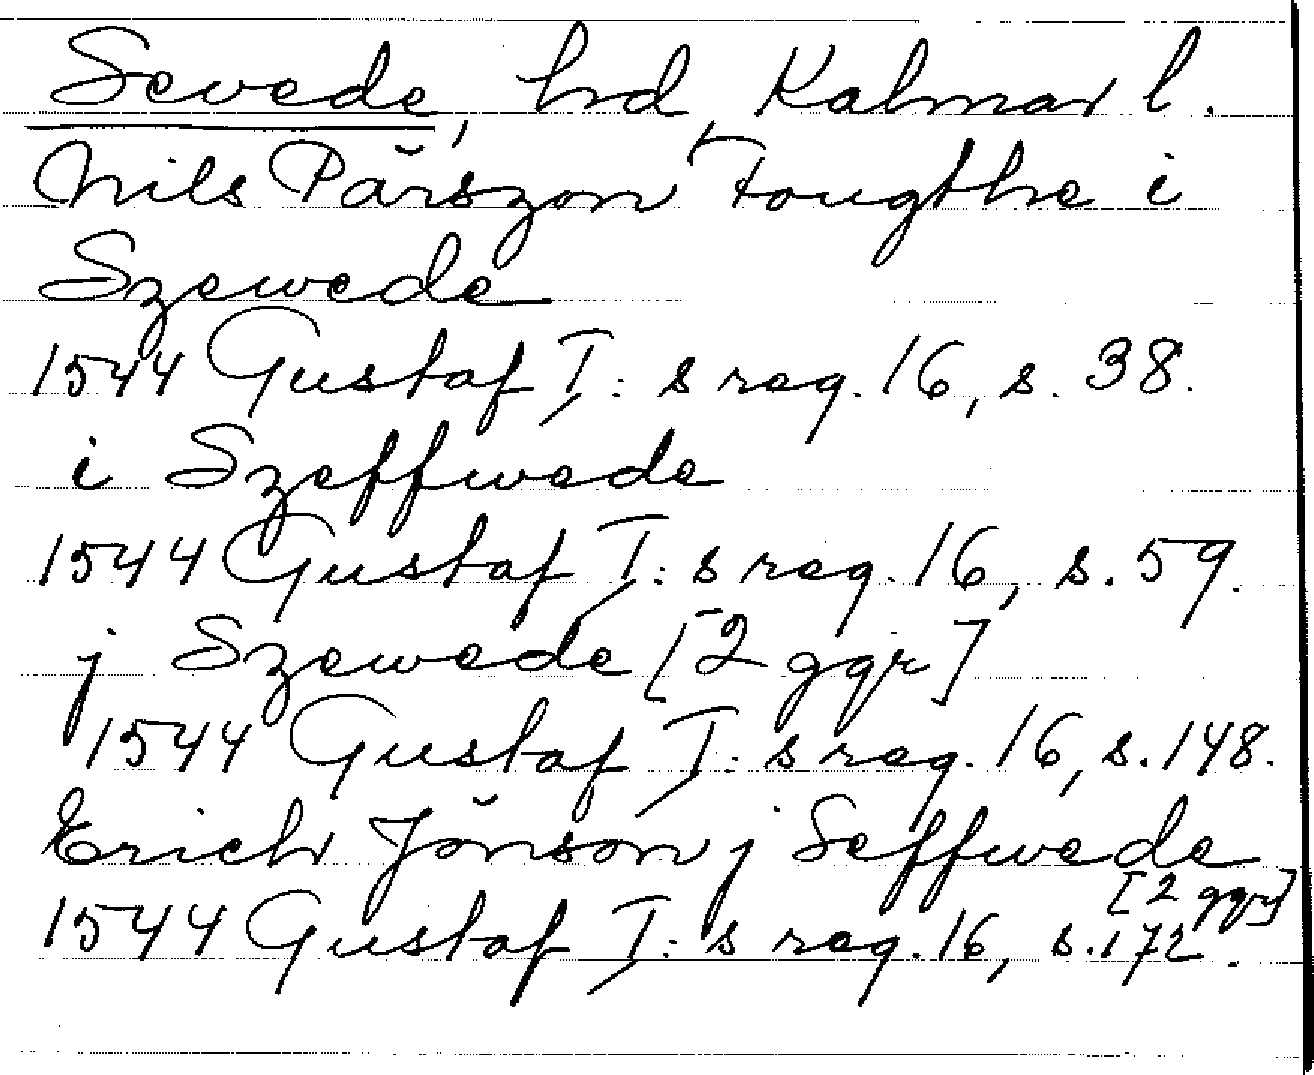 Sevede, hrd, Kalmar l.
Nils Pärszon Fougthe i
Szewede
1544 Gustaf I:s reg. 16, s. 38.
i Szeffwede
1544 Gustaf I:s reg. 16, s. 59.
j Szewede [2 ggr]
1544 Gustaf I:s reg. 16, s. 148.
Erich Jönson j Seffwede
[2 ggr]
1544 Gustaf I:s reg. 16, s. 172.